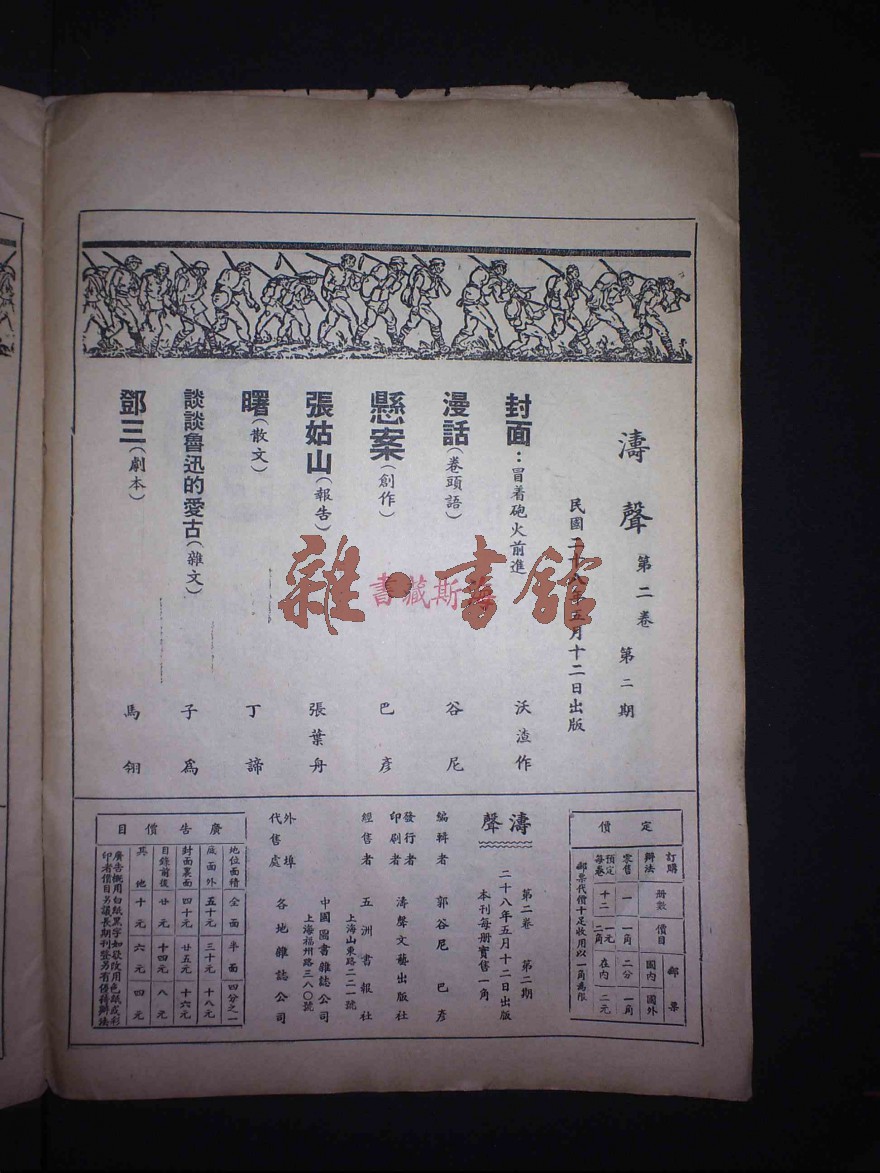 濤聲 第二卷 第二期
民國二十八年五月十二日出版
封面：冒着砲火前進 沃渣作
漫話（卷頭語） 谷尼
懸案（創作） 巴彥
張姑山（報告） 張葉舟
曙（散文） 丁諦
談談魯迅的愛古（雜文） 子爲
鄧三（劇本） 馬翎
雜·書館
書藏斯
定價
訂購辦法 册數 價目 郵票
國內 國外
零售 一 一角 二分 一角
預定每卷 十二 一元二角 在內 二元
郵票代價十足收用以一角為限
濤聲
第二卷 第二期
二十八年五月十二日出版
本刊每册實售一角
編輯者 郭谷尼 巴彥
發行者
印刷者 濤聲文藝出版社
經售者 五洲書報社
上海山東路二二一號
中國圖書雜誌公司
上海福州路三八〇號
外埠代售處 各地雜誌公司
廣告價目
地位面積 全面 半面 四分之一
底面外 五十元 三十元 十八元
封面裏面 四十元 廿五元 十六元
目錄前後 廿元 十四元 八元
其他 十元 六元 四元
廣告概用白紙黑字如欲改用色紙或彩
印者價目另議長期刊登另有優待辦法